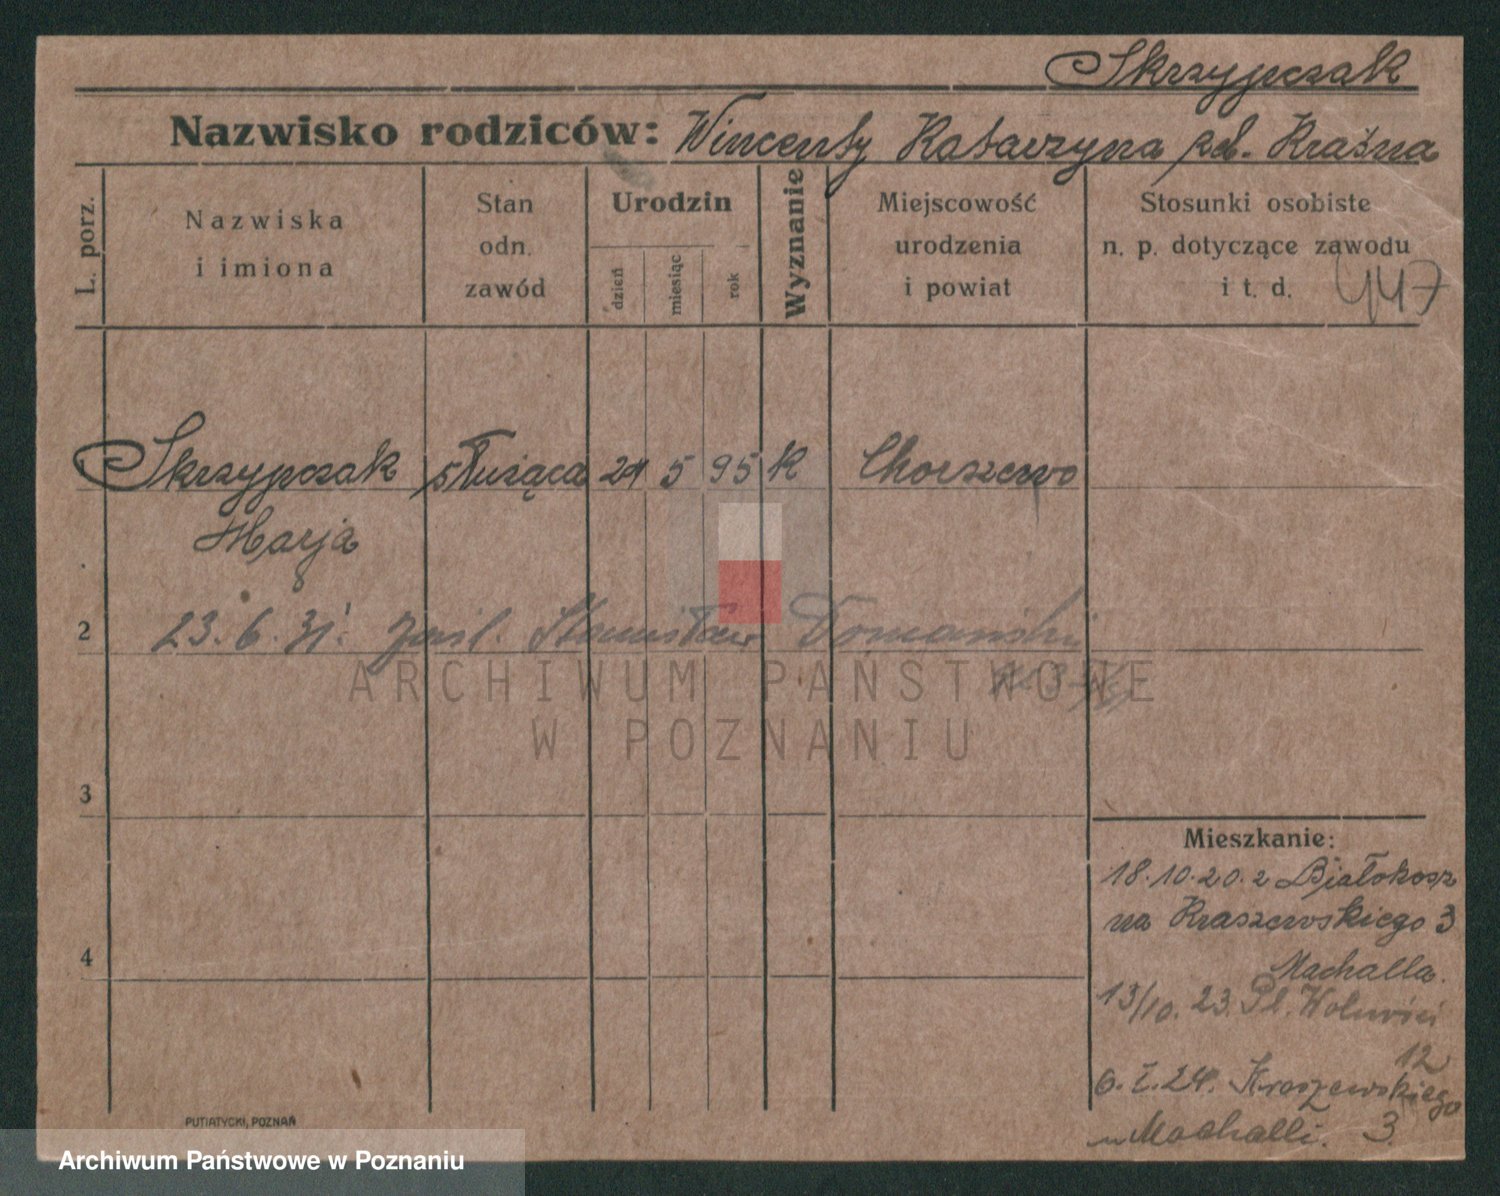 Skrzypczak
Nazwisko rodziców: Wincenty Katarzyna zd. Kraśna
L. porz.
Nazwiska
i imiona
Stan
odn.
zawód
Urodzin
dzień
miesiąc
rok
Wyznanie
Miejscowość
urodzenia
i powiat
Stosunki osobiste
n. p. dotyczące zawodu
i t. d.
447
Skrzypczak służąca 24 5 95 K Chorszewo
Marja
2 23.6.31. Stanisław Domański
3
4
Mieszkanie:
18.10.20. z Białokosz
na Kraszewskiego 3
Machalla.
13/10. 23. Pl. Wolności
12
6. 2. 24. Kraszewskiego
u Machalli. 3.
PUTIATYCKI, POZNAŃ
ARCHIWUM PAŃSTWOWE
W POZNANIU
Archiwum Państwowe w Poznaniu